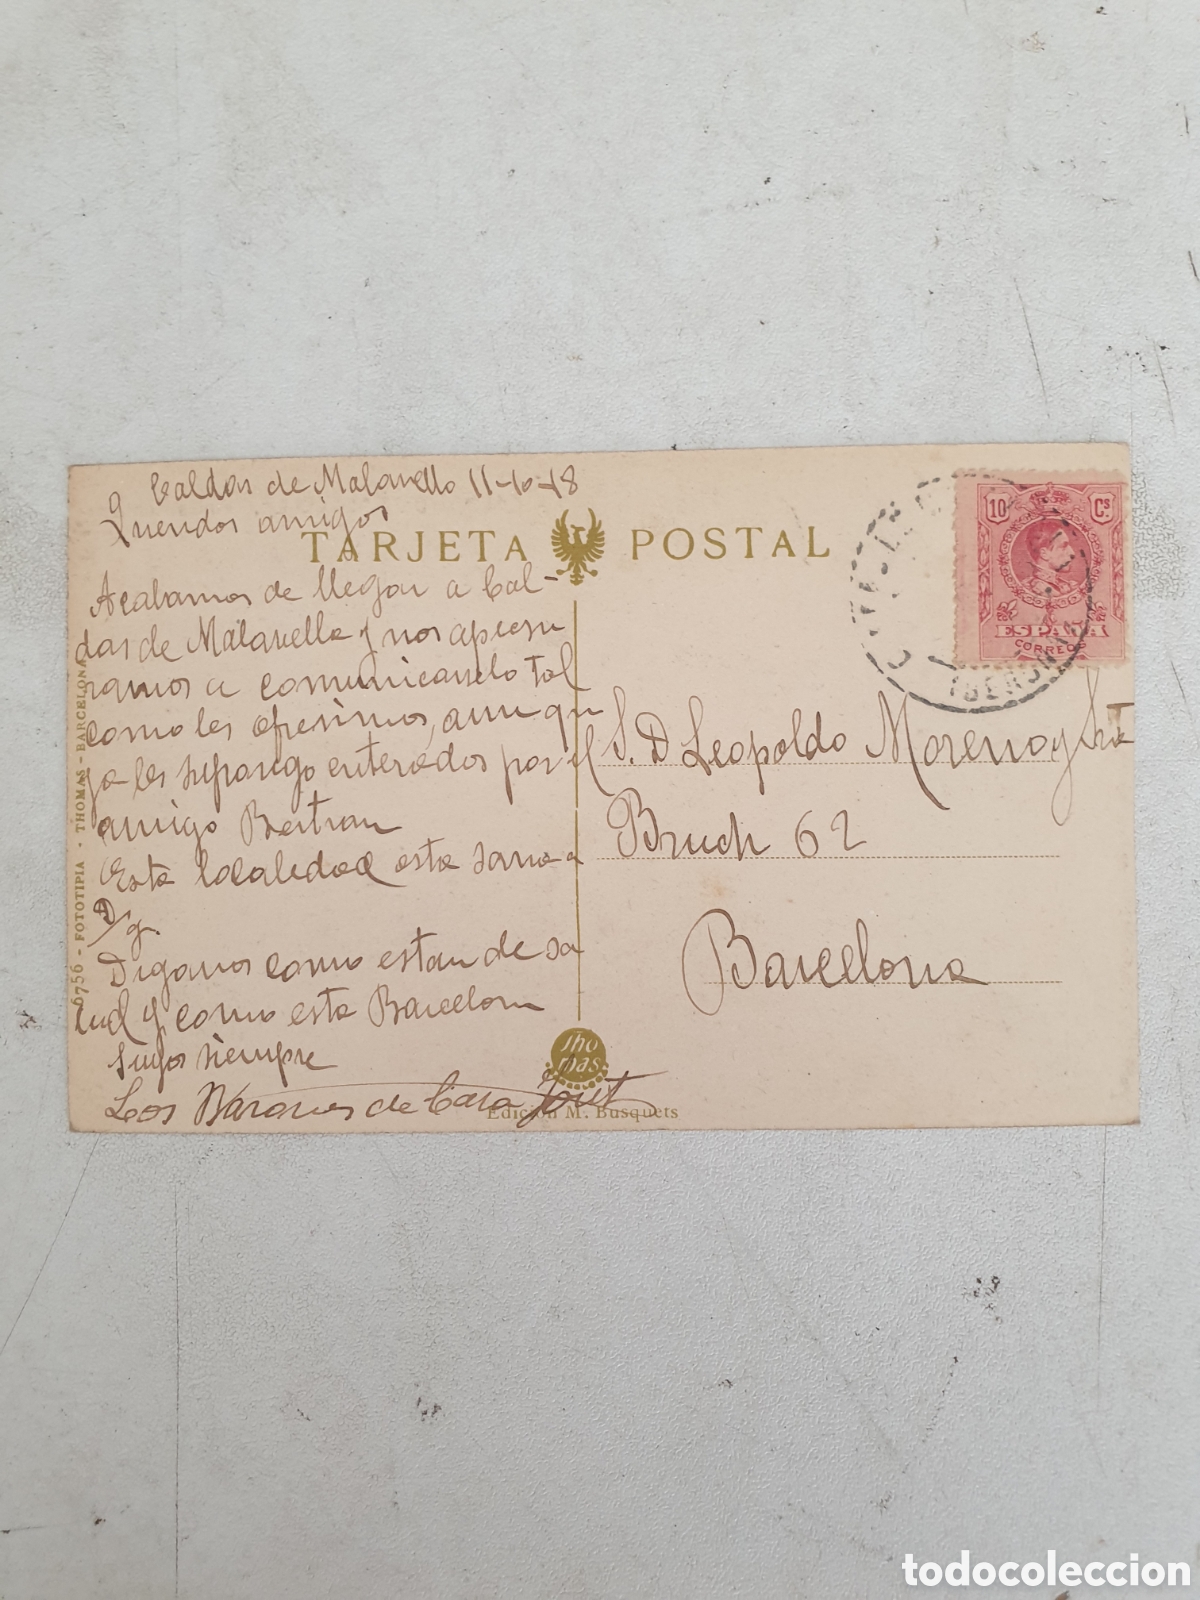 Caldas de Malavella 11-10-18
Queridos amigos
TARJETA POSTAL
Acabamos de llegar a Cal-
das de Malavella y nos apresu
ramos a comunicarselo tal
como les ofrecimos, aunque
ya les supongo enterados por el
amigo Bertran
Esta localidad esta sana a
D/g
Diganos como estan de sa
lud y como esta Barcelona
Suyos siempre
Los Barones de Casa
S. D Leopoldo Moreno y Sra
Bruch 62
Barcelona
10 Cs
ESPAÑA
CORREOS
6756 - FOTOTIPIA - THOMAS - BARCELONA
Thomas
Edición M. Busquets
todocoleccion